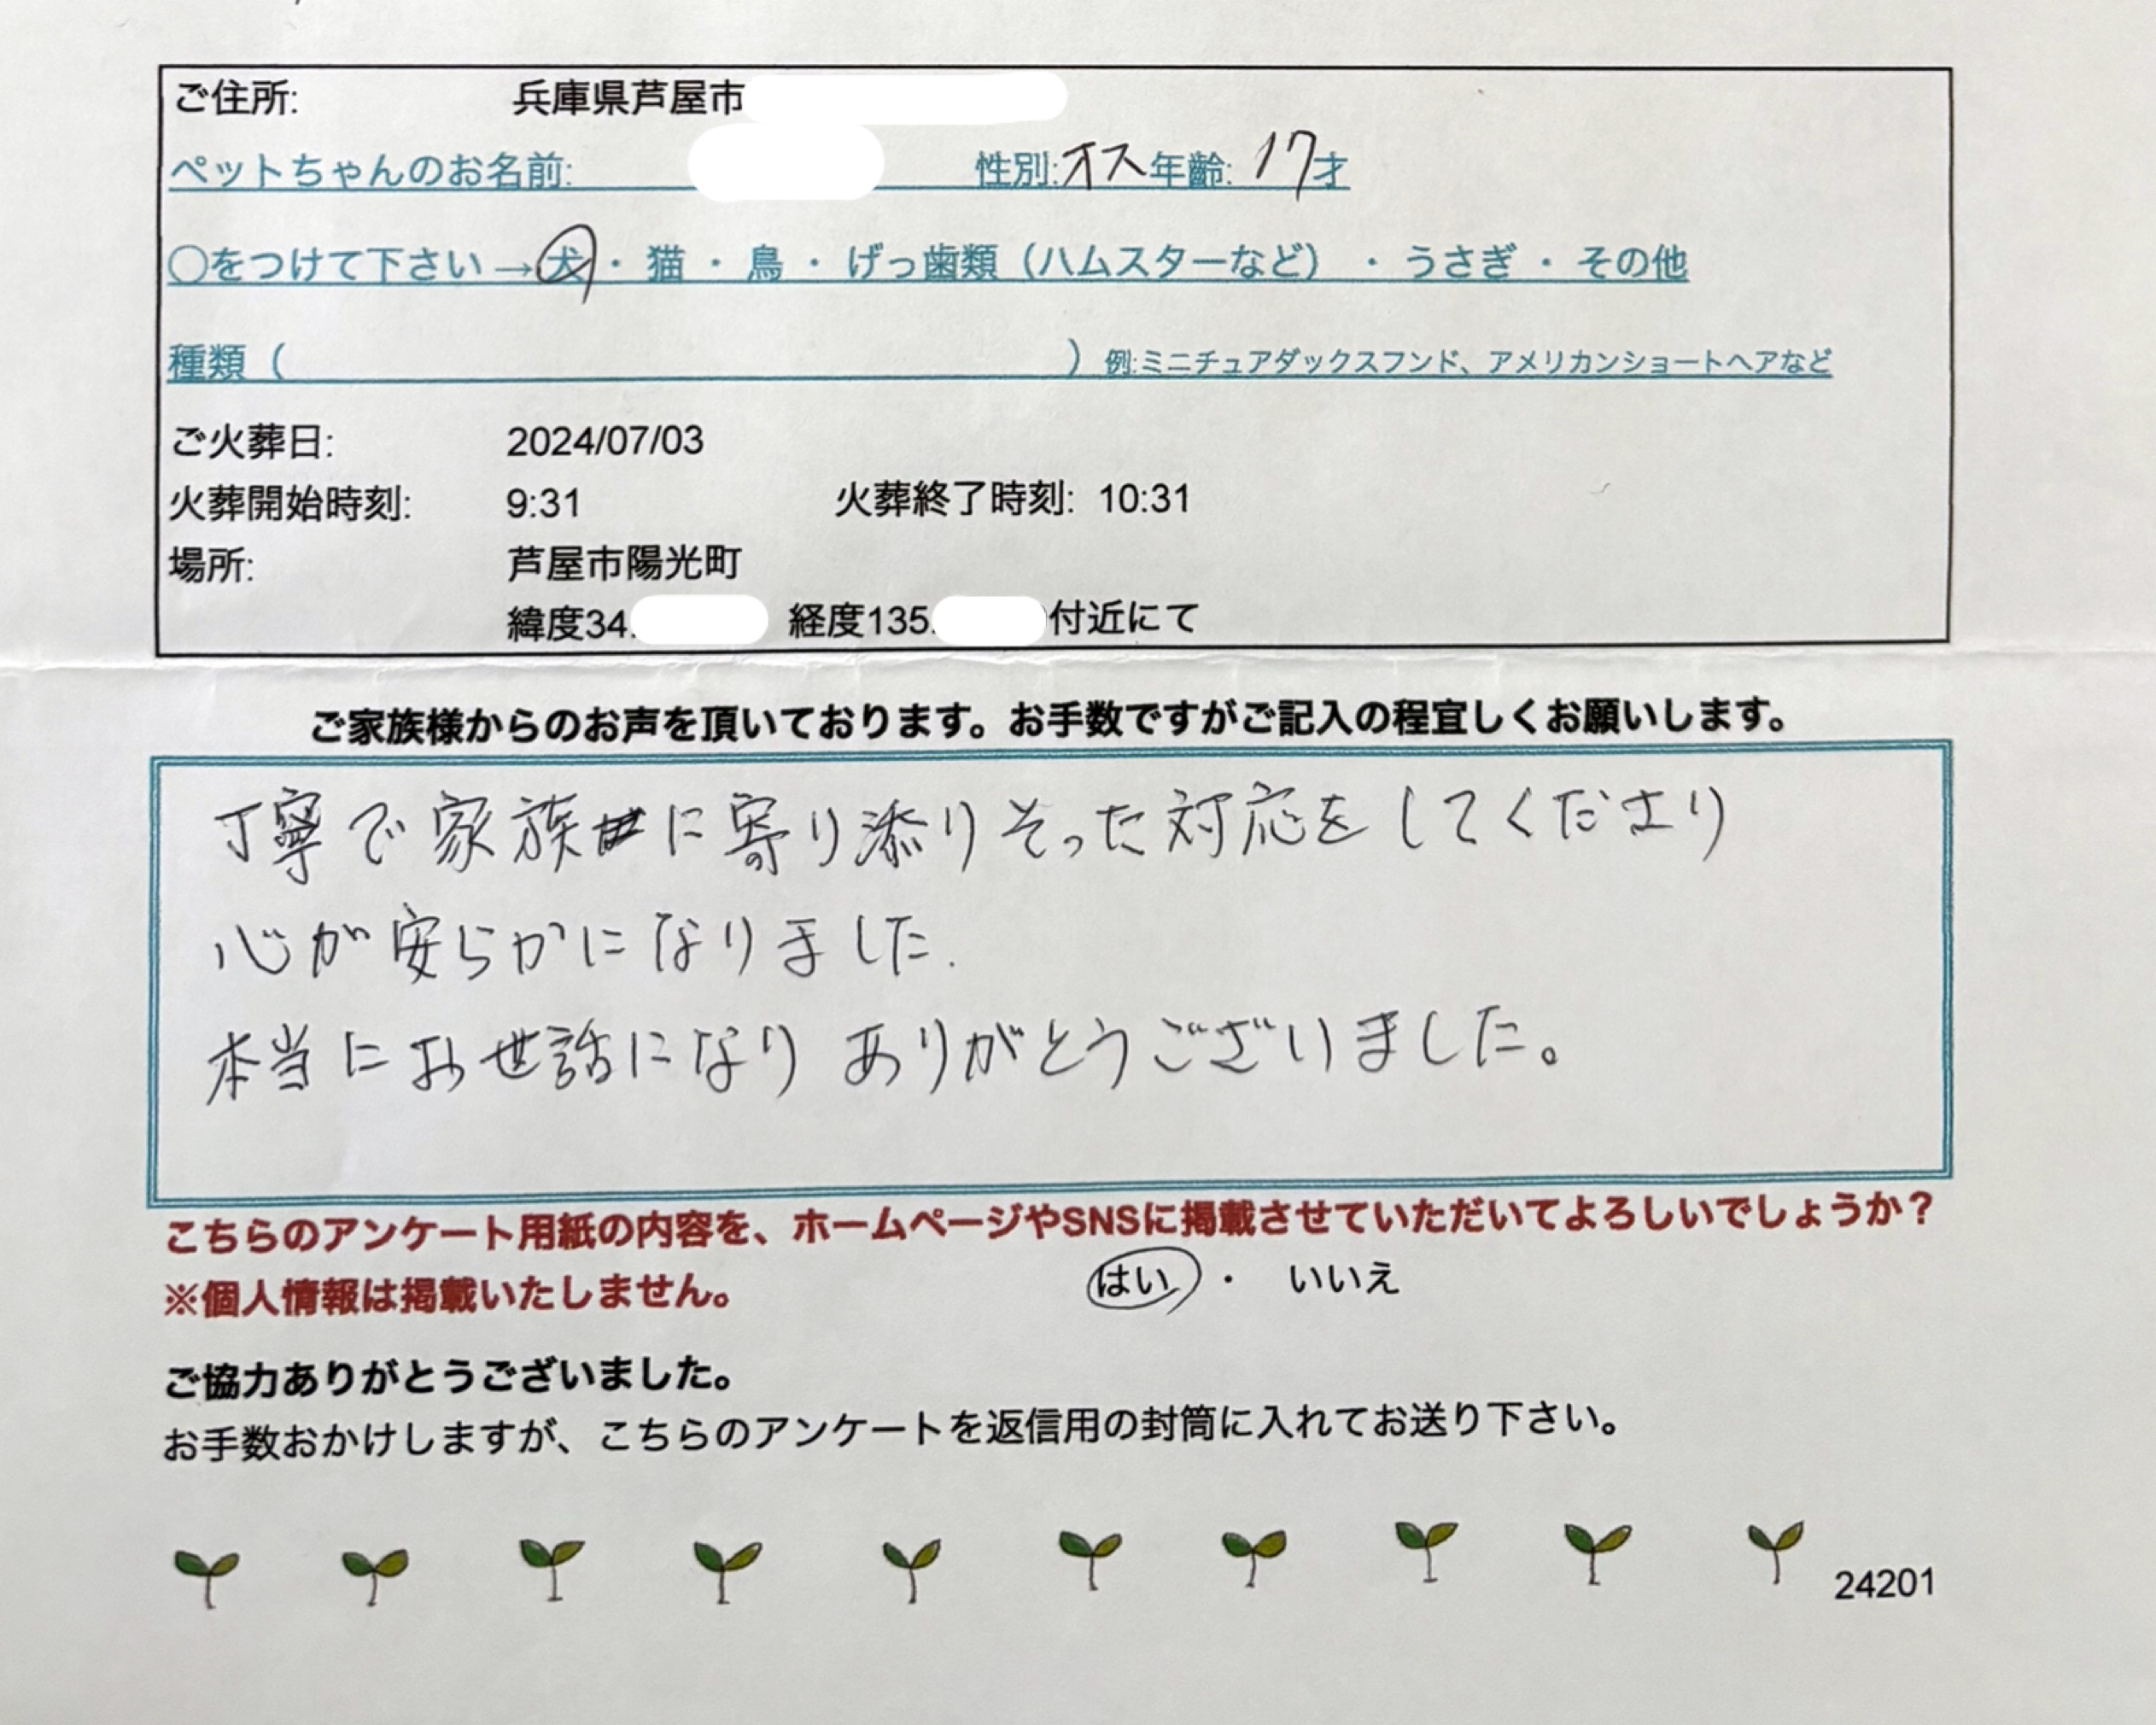 ご住所: 兵庫県芦屋市
ペットちゃんのお名前: 性別:オス 年齢: 17才
○をつけて下さい→犬・猫・鳥・げっ歯類（ハムスターなど）・うさぎ・その他
種類（ ）例:ミニチュアダックスフンド、アメリカンショートヘアなど
ご火葬日: 2024/07/03
火葬開始時刻: 9:31 火葬終了時刻: 10:31
場所: 芦屋市陽光町
緯度34. 経度135. 付近にて
ご家族様からのお声を頂いております。お手数ですがご記入の程宜しくお願いします。
丁寧で家族に寄り添りそった対応をしてくださり
心が安らかになりました.
本当にお世話になり ありがとうございました。
こちらのアンケート用紙の内容を、ホームページやSNSに掲載させていただいてよろしいでしょうか？
※個人情報は掲載いたしません。 はい ・ いいえ
ご協力ありがとうございました。
お手数おかけしますが、こちらのアンケートを返信用の封筒に入れてお送り下さい。
24201